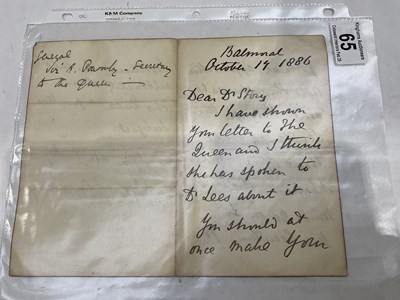 K&M Company
65
General
Sir H. Ponsonby - Secretary
to the Queen
Balmoral
October 19 1886
Dear Dr Story
I have shown
your letter to The
Queen and I think
she has spoken to
Dr Lees about it
You should at
once make your